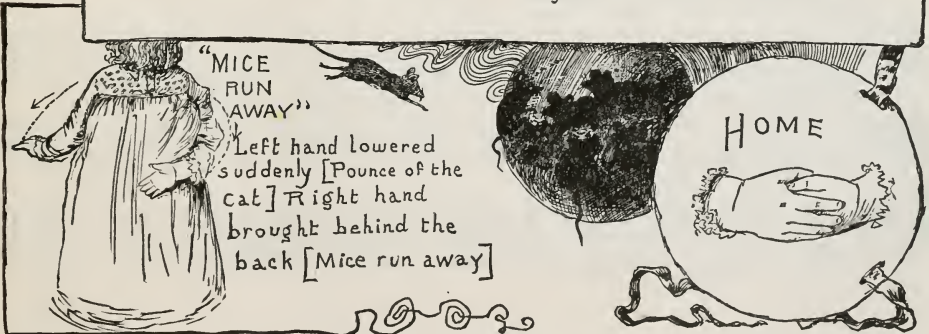 "MICE
RUN
AWAY"
Left hand lowered
suddenly [Pounce of the
cat] Right hand
brought behind the
back [Mice run away]
HOME